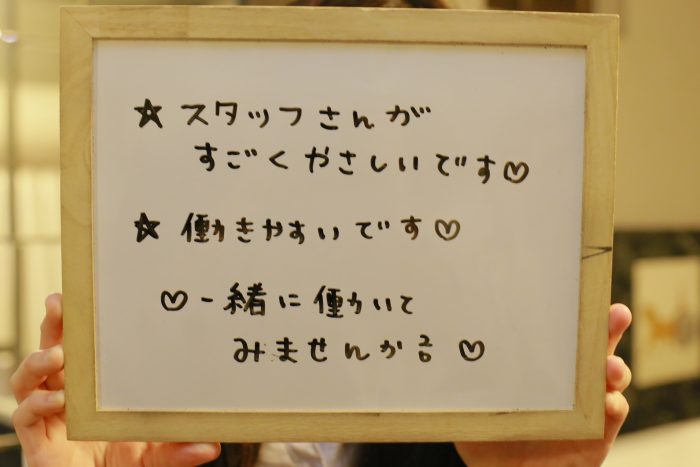 ☆ スタッフさんが
すごくやさしいです♡
☆ 働きやすいです♡
♡一緒に働いて
みませんか? ♡